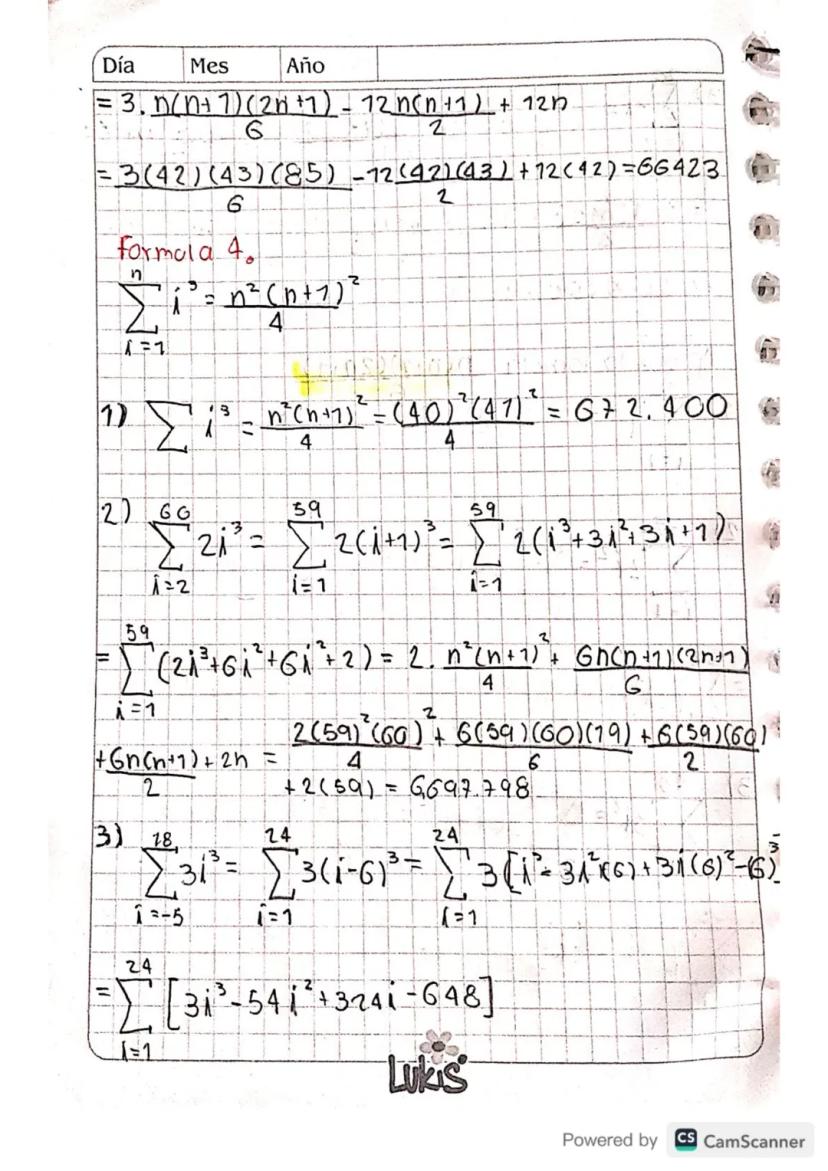 Día Mes Año
= 3. n(n+1)(2n+1)/6 - 12n(n+1)/2 + 12n
= 3(42)(43)(85)/6 - 12(42)(43)/2 + 12(42) = 66423
formula 4.
n∑i=1 i³ = n²(n+1)²/4
1) ∑ i³ = n²(n+1)²/4 = (40)²(41)²/4 = 672.400
2) 60∑i=2 2i³ = 59∑i=1 2(i+1)³ = 59∑i=1 2(i³+3i²+3i+1)
= 59∑i=1 (2i³+6i²+6i²+2) = 2. n²(n+1)²/4 + 6n(n+1)(2n+1)/6
+6n(n+1)/2 + 2n = 2(59)²(60)²/4 + 6(59)(60)(19)/6 + 6(59)(60)/2
+2(59) = 6697.798
3) 18∑i=-5 3i³ = 24∑i=1 3(i-6)³ = 24∑i=1 3[i³-3i²(6)+3i(6)²-(6)³]
= 24∑i=1 [3i³-54i²+324i-648]
LUKIS
Powered by CS CamScanner